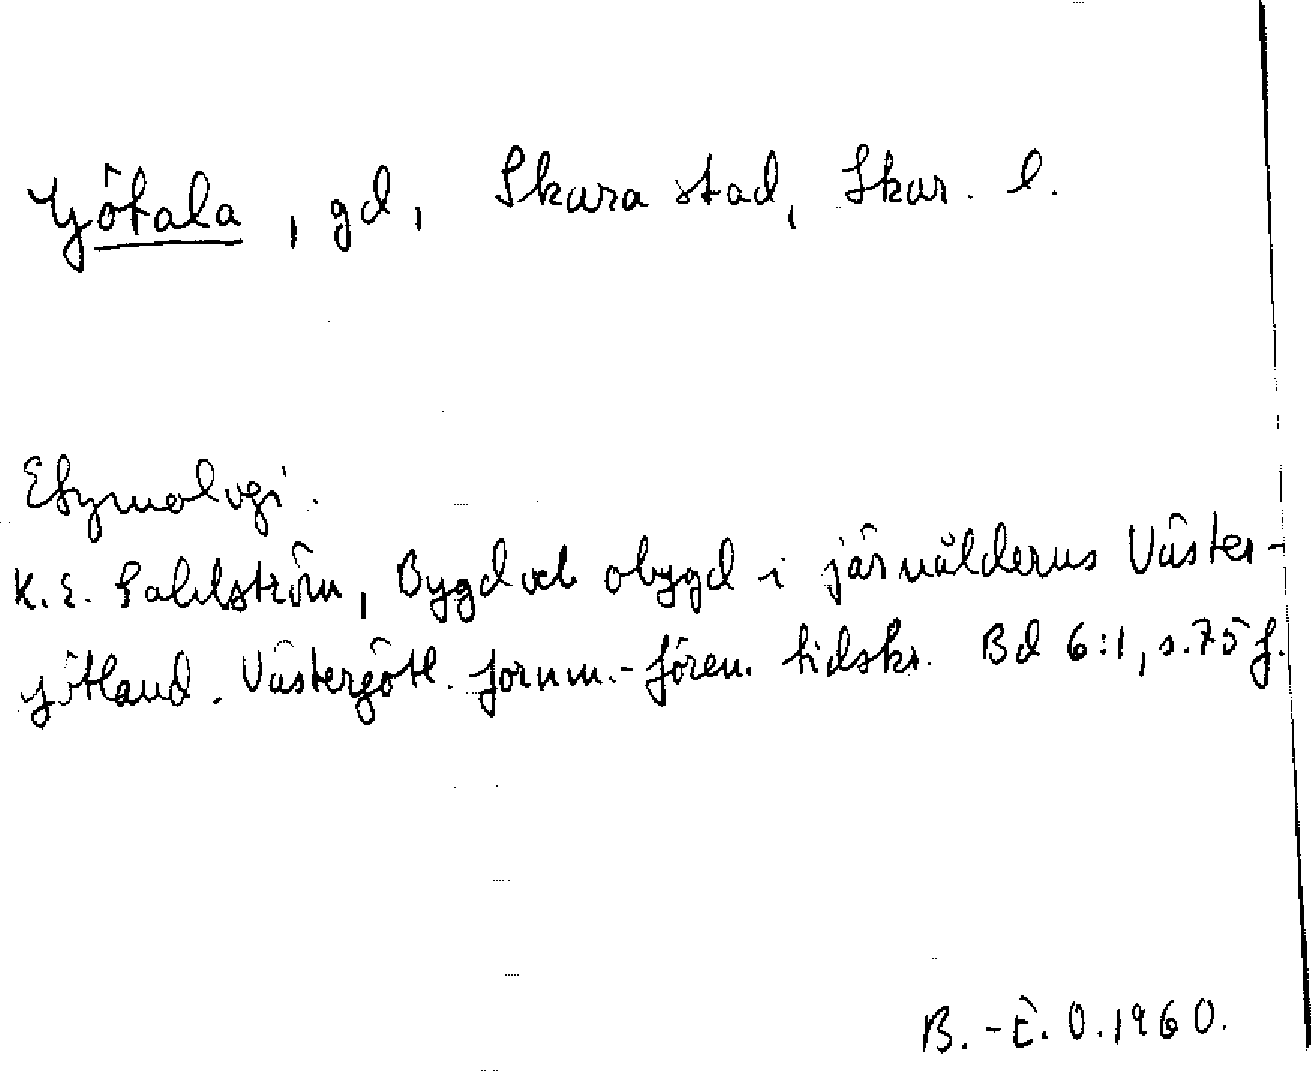 Götala, gd, Skara stad, Skar. l.
Etymologi.
K. E. Sahlström, Bygd och obygd i järnålderns Väster-
götland. Västergötl. fornm.-fören. tidskr. Bd 6:1, s. 75 f.
B.-E. O. 1960.